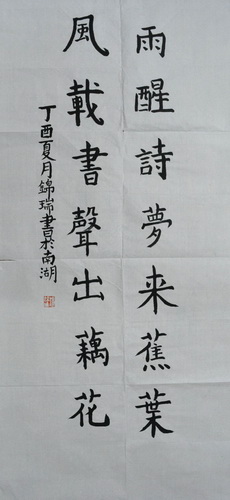 雨醒詩夢来蕉葉
風載書聲出藕花
丁酉夏月錦瑞書於南湖